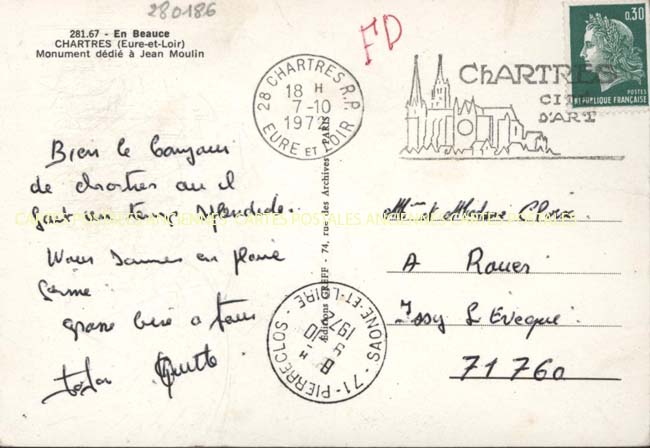 280186
281.67 - En Beauce
CHARTRES (Eure-et-Loir)
Monument dédié à Jean Moulin
FD
28 CHARTRES R.P.
18 H
7-10
1972
EURE ET LOIR
CHARTRES
CITÉ
D'ART
0.30
POSTES
REPUBLIQUE FRANÇAISE
Bien le bonjour
de chartres ou il
fait un temps splendide.
Nous sommes en pleine
forme.
grosse bise a tous
CARTES POSTALES ANCIENNES CARTES POSTALES ANCIENNES CARTES POSTALES
Editions GREFF - 74, rue des Archives - PARIS
71 - PIERRECLOS - SAONE-ET-LOIRE
Mme et
A
Issy L'Evêque
71760